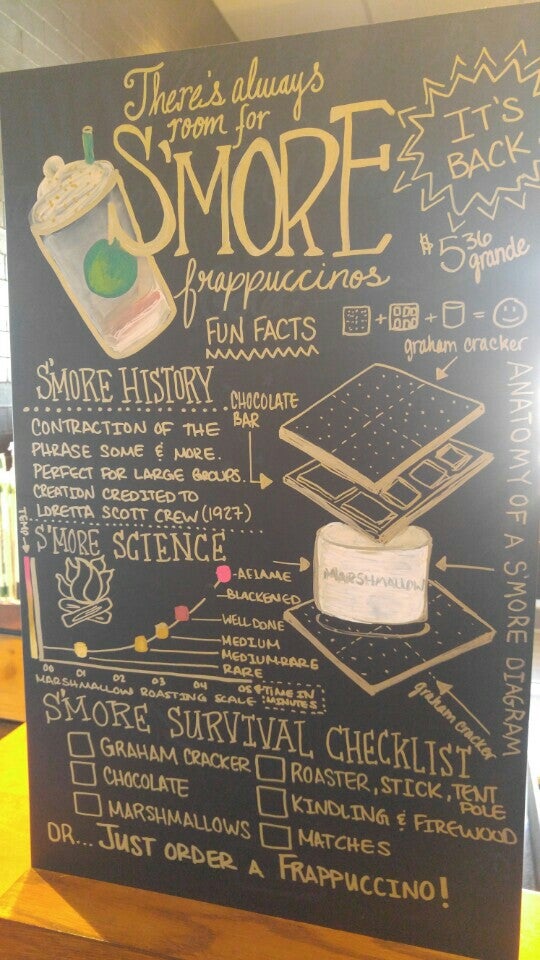 There's always
room for
S'MORE
frappuccinos
IT'S
BACK
$5.36
grande
FUN FACTS
+ + =
S'MORE HISTORY
CONTRACTION OF THE
PHRASE SOME & MORE.
PERFECT FOR LARGE GROUPS.
CREATION CREDITED TO
LORETTA SCOTT CREW (1927)
graham cracker
CHOCOLATE
BAR
MARSHMALLOW
graham cracker
ANATOMY OF A S'MORE DIAGRAM
S'MORE SCIENCE
TEMP
AFLAME
BLACKENED
WELL DONE
MEDIUM
MEDIUM-RARE
RARE
00 01 02 03 04 05
MARSHMALLOW ROASTING SCALE *TIME IN
MINUTES
S'MORE SURVIVAL CHECKLIST
GRAHAM CRACKER
CHOCOLATE
MARSHMALLOWS
ROASTER, STICK, TENT
POLE
KINDLING & FIREWOOD
MATCHES
OR... JUST ORDER A FRAPPUCCINO!